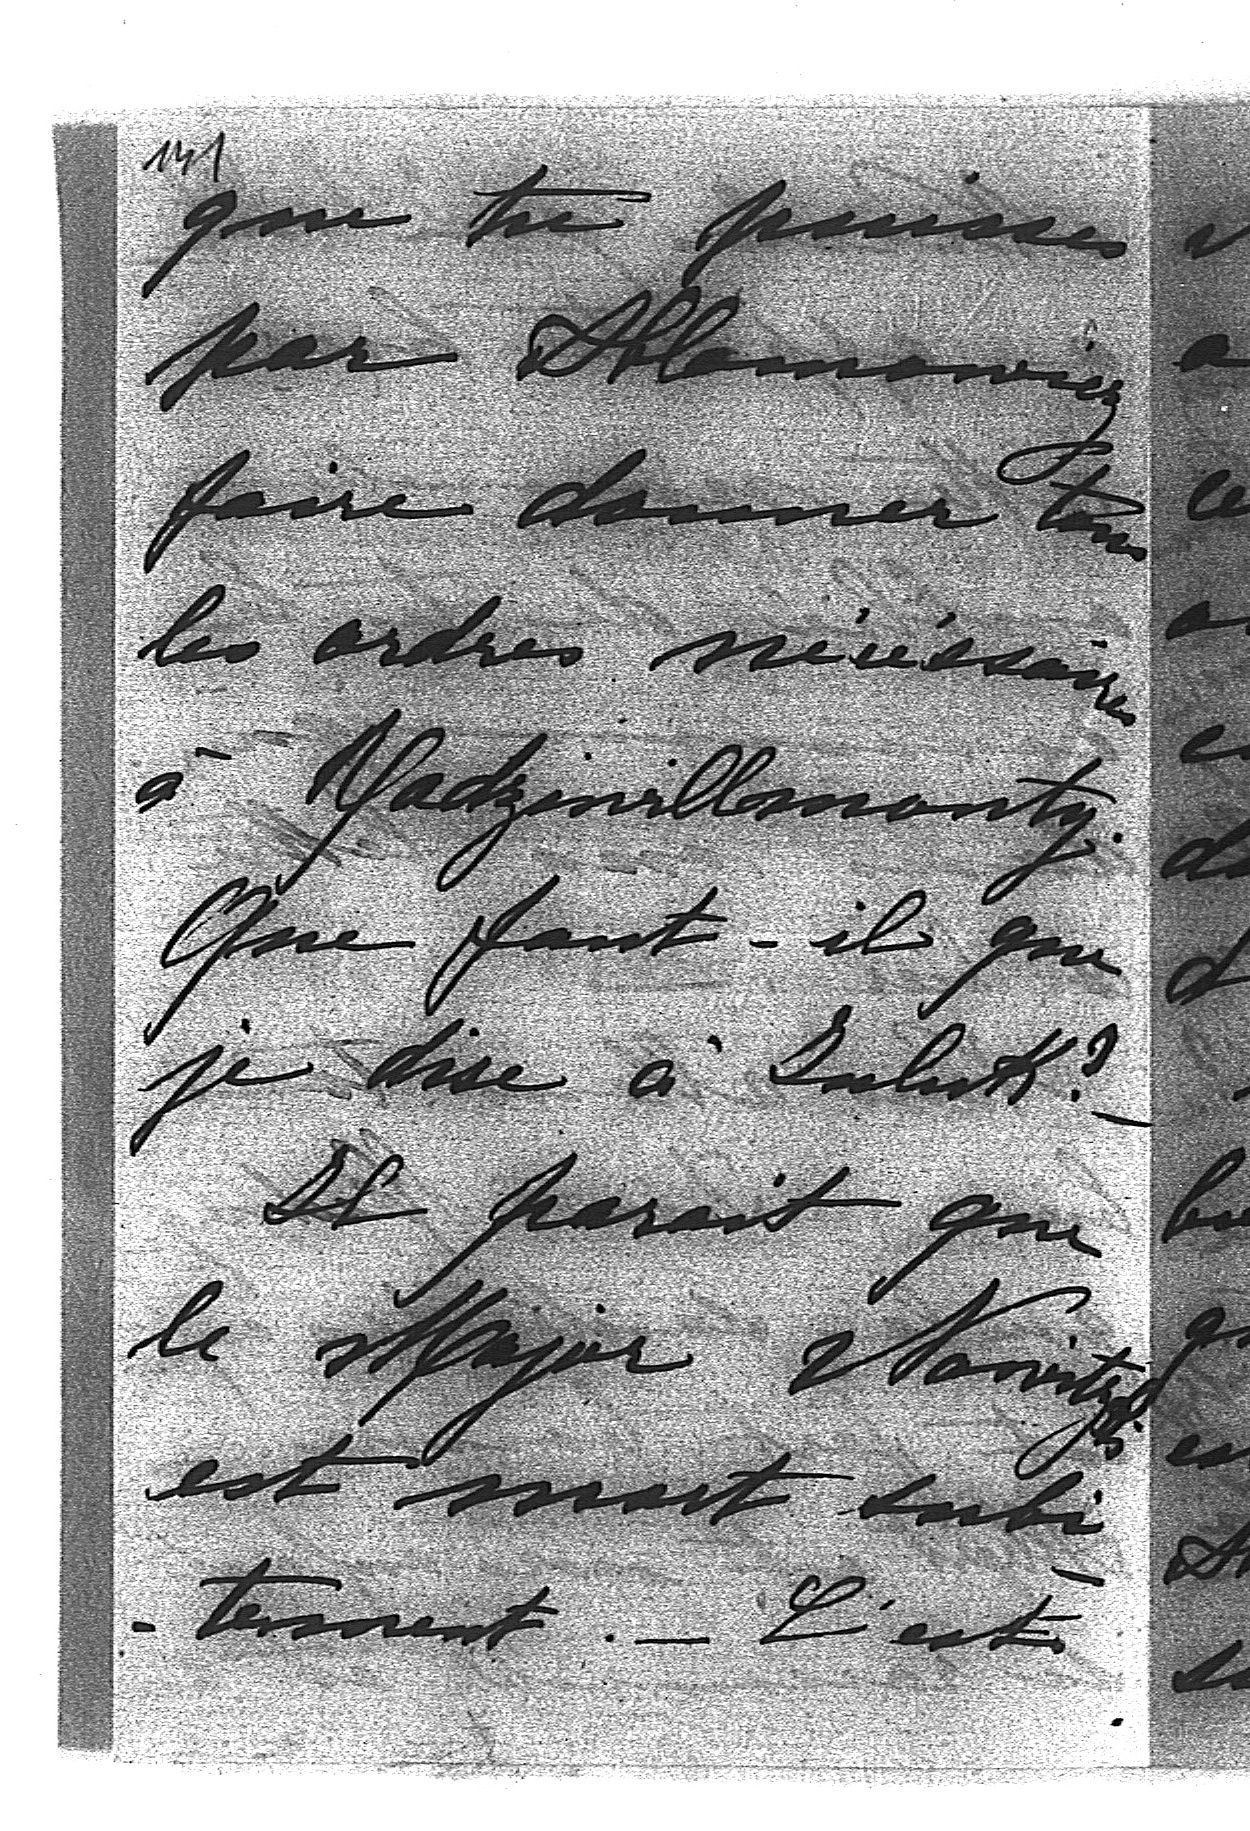 que tu puisses
par Ablamowicz
faire donner tous
les ordres nécéssaires
à Radziwillmonty.
Que faut-il que
je dise à
Il parait que
le Major
est mort subi
-tement. — C'est